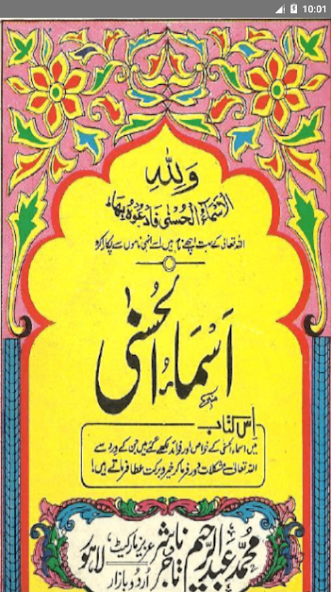 10:01
وَلِلّٰهِ
الْاَسْمَآءُ الْحُسْنٰى فَادْعُوْهُ بِهَا
اللہ تعالیٰ کے بہت اچھے نام ہیں اسے انہی ناموں سے پکارا کرو
اَسْمَاءُ الْحُسْنٰى
اِس کتاب
میں اسماء الحسنیٰ کے خواص اور فوائد لکھے گئے ہیں جن کے ورد سے
اللہ تعالیٰ مشکلات دور فرما کر خیر و برکت عطا فرماتے ہیں!
محمد عبد الرحیم ناشر تاجر عزیز مارکیٹ، اُردو بازار لاہور